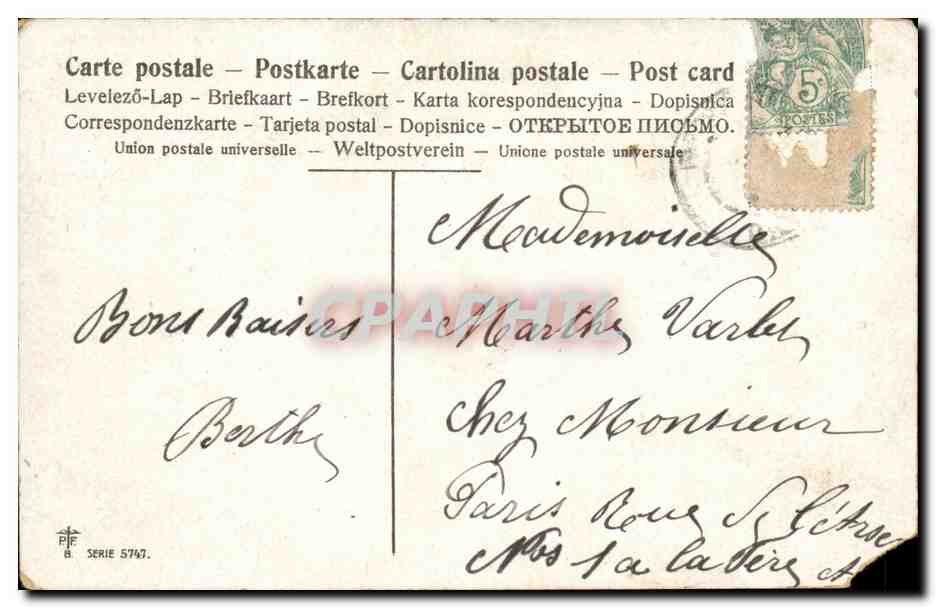 Carte postale — Postkarte — Cartolina postale — Post card
Levelező-Lap - Briefkaart - Brefkort - Karta korespondencyjna - Dopisnica
Correspondenzkarte - Tarjeta postal - Dopisnice - ОТКРЫТОЕ ПИСЬМО.
Union postale universelle — Weltpostverein — Unione postale universale
5c
POSTES
Bons Baisers
Berthe
Mademoiselle
Marthe Varlet
Chez Monsieur
Paris Rue
1 a la
CPARHTL
P F
B. SERIE 5747.